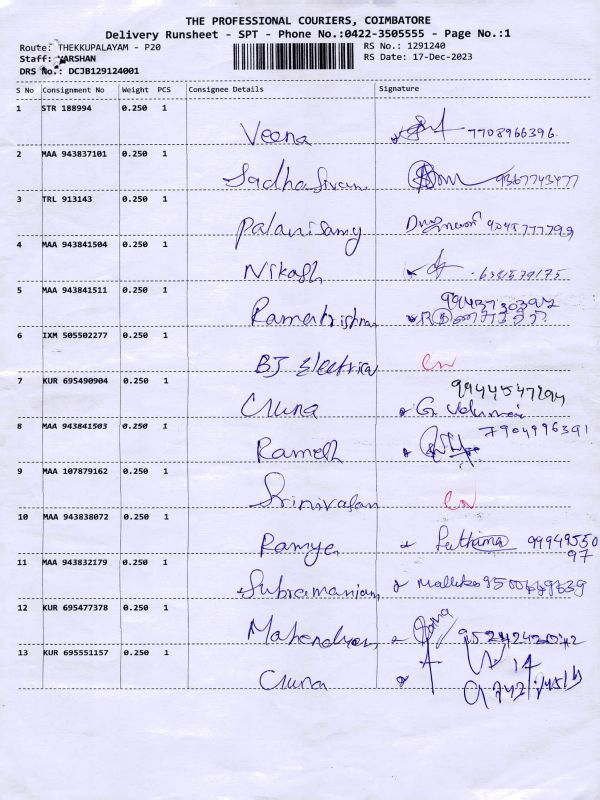 THE PROFESSIONAL COURIERS, COIMBATORE
Delivery Runsheet - SPT - Phone No.:0422-3505555 - Page No.:1
Route: THEKKUPALAYAM - P20 RS No.: 1291240
Staff: VARSHAN RS Date: 17-Dec-2023
DRS No.: DCJB129124001
S No Consignment No Weight PCS Consignee Details Signature
1 STR 188994 0.250 1
Veena 7708966396
2 MAA 943837101 0.250 1
Sadhasivam 9367743477
3 TRL 913143 0.250 1
Palanisamy
4 MAA 943841504 0.250 1
Nikash
5 MAA 943841511 0.250 1
Ramakrishnan
6 IXM 505502277 0.250 1
BJ Electrica
7 KUR 695490904 0.250 1
G.
8 MAA 943841503 0.250 1 7904996391
Ramesh
9 MAA 107879162 0.250 1
Srinivasan
10 MAA 943838072 0.250 1
Ramya 99949550
97
11 MAA 943832179 0.250 1
Subramaniam
12 KUR 695477378 0.250 1
Mahendran
13 KUR 695551157 0.250 1